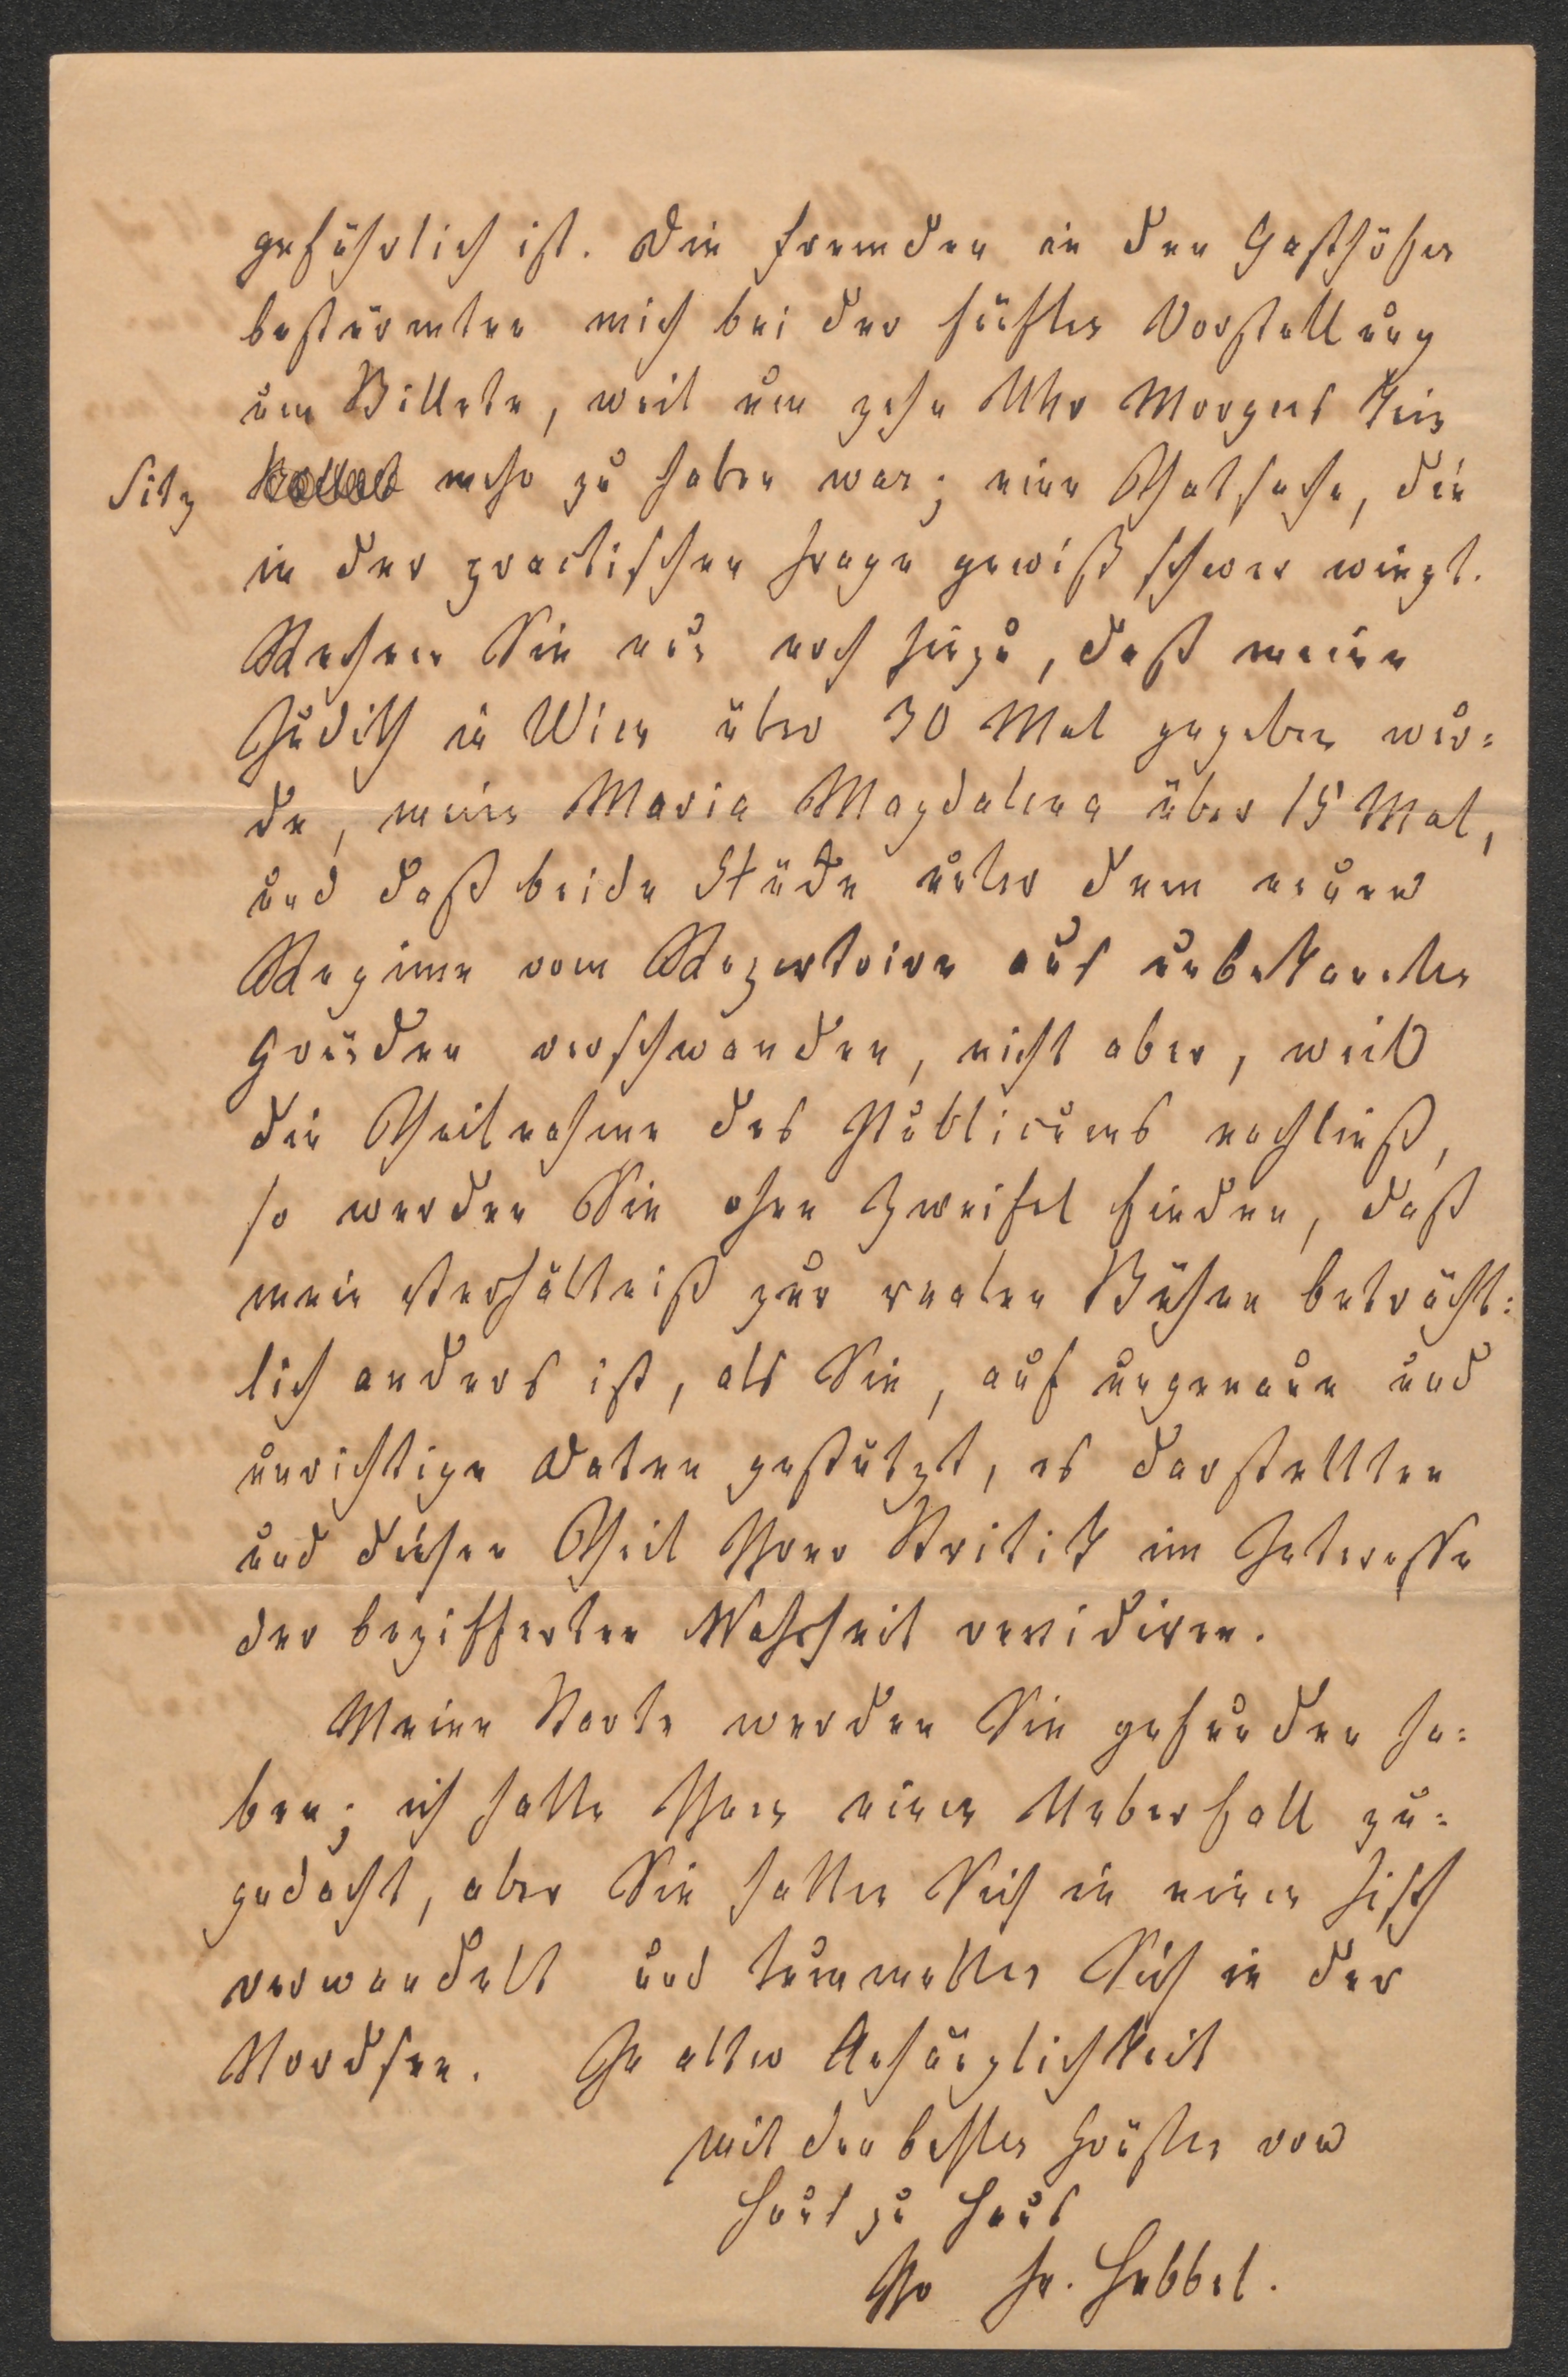 gefährlich ist. Die Fremden in den Gasthöfen
bestürmten mich bei der fünften Vorstellung
um Billete, weil um zehn Uhr Morgens kein
Sitz mehr zu haben war; eine Thatsache, die
in der practischen Frage gewiß schwer wiegt.
Rechnen Sie nun noch hinzu, daß meine
Judith in Wien über 30 Mal gegeben wur=
de, meine Maria Magdalena über 15 Mal,
und daß beide Stücke unter dem neuen
Regime vom Repertoire aus unbekannten
Gründen verschwanden, nicht aber, weil
die Theilnahme des Publicums nachließ,
so werden Sie ohne Zweifel finden, daß
mein Verhältniß zur realen Bühne beträcht=
lich anders ist, als Sie, auf ungenaue und
unrichtige Daten gestützt, es darstellten
und diesen Theil Ihrer Kritik im Interesse
der bezifferten Wahrheit revidiren.
Meine Karte werden Sie gefunden ha=
ben; ich hatte Ihnen einen Ueberfall zu=
gedacht, aber Sie hatten Sich in einen Fisch
verwandelt und tummelten Sich in der
Nordsee. In alter Anhänglichkeit
mit den besten Grüßen von
Haus zu Haus
Ihr Fr. Hebbel.